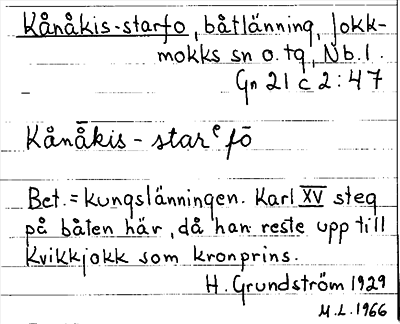 Kånåkis-starfo, båtlänning, Jokk-
mokks sn o. tg, Nb. l.
Gn 21 c 2:47
Kånåkis - starᵉfō
Bet. = kungslänningen. Karl XV steg
på båten här, då han reste upp till
Kvikkjokk som kronprins.
H. Grundström 1929
M.L. 1966